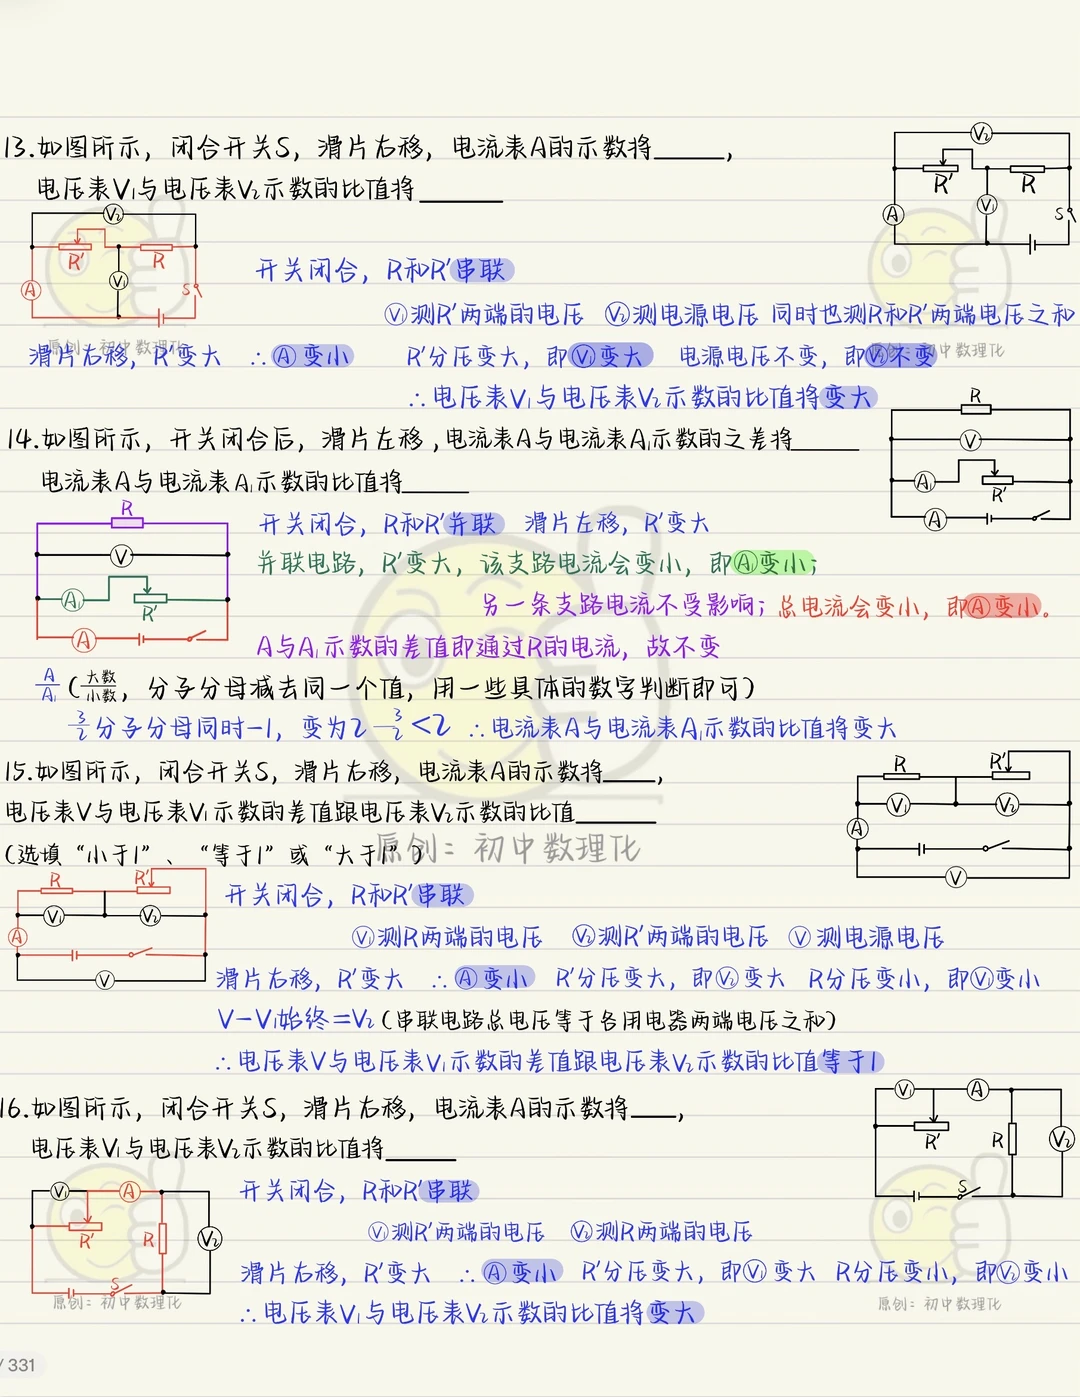 13.如图所示，闭合开关S，滑片右移，电流表A的示数将_____，
电压表V₁与电压表V₂示数的比值将______
开关闭合，R和R′串联
Ⓥ₁测R′两端的电压 Ⓥ₂测电源电压 同时也测R和R′两端电压之和
滑片右移，R′变大 ∴Ⓐ变小 R′分压变大，即Ⓥ₁变大 电源电压不变，即Ⓥ₂不变
∴电压表V₁与电压表V₂示数的比值将变大
14.如图所示，开关闭合后，滑片左移，电流表A与电流表A₁示数的之差将_____
电流表A与电流表A₁示数的比值将_____
开关闭合，R和R′并联 滑片左移，R′变大
并联电路，R′变大，该支路电流会变小，即Ⓐ₁变小；
另一条支路电流不受影响；总电流会变小，即Ⓐ变小。
A与A₁示数的差值即通过R的电流，故不变
A/A₁（大数/小数，分子分母减去同一个值，用一些具体的数字判断即可）
3/2分子分母同时-1，变为2 3/2<2 ∴电流表A与电流表A₁示数的比值将变大
15.如图所示，闭合开关S，滑片右移，电流表A的示数将____，
电压表V与电压表V₁示数的差值跟电压表V₂示数的比值______
（选填“小于1”、“等于1”或“大于1”）
开关闭合，R和R′串联
Ⓥ₁测R两端的电压 Ⓥ₂测R′两端的电压 Ⓥ测电源电压
滑片右移，R′变大 ∴Ⓐ变小 R′分压变大，即Ⓥ₂变大 R分压变小，即Ⓥ₁变小
V-V₁始终=V₂（串联电路总电压等于各用电器两端电压之和）
∴电压表V与电压表V₁示数的差值跟电压表V₂示数的比值等于1
16.如图所示，闭合开关S，滑片右移，电流表A的示数将___，
电压表V₁与电压表V₂示数的比值将_____
开关闭合，R和R′串联
Ⓥ₁测R′两端的电压 Ⓥ₂测R两端的电压
滑片右移，R′变大 ∴Ⓐ变小 R′分压变大，即Ⓥ₁变大 R分压变小，即Ⓥ₂变小
∴电压表V₁与电压表V₂示数的比值将变大
原创：初中数理化
/331